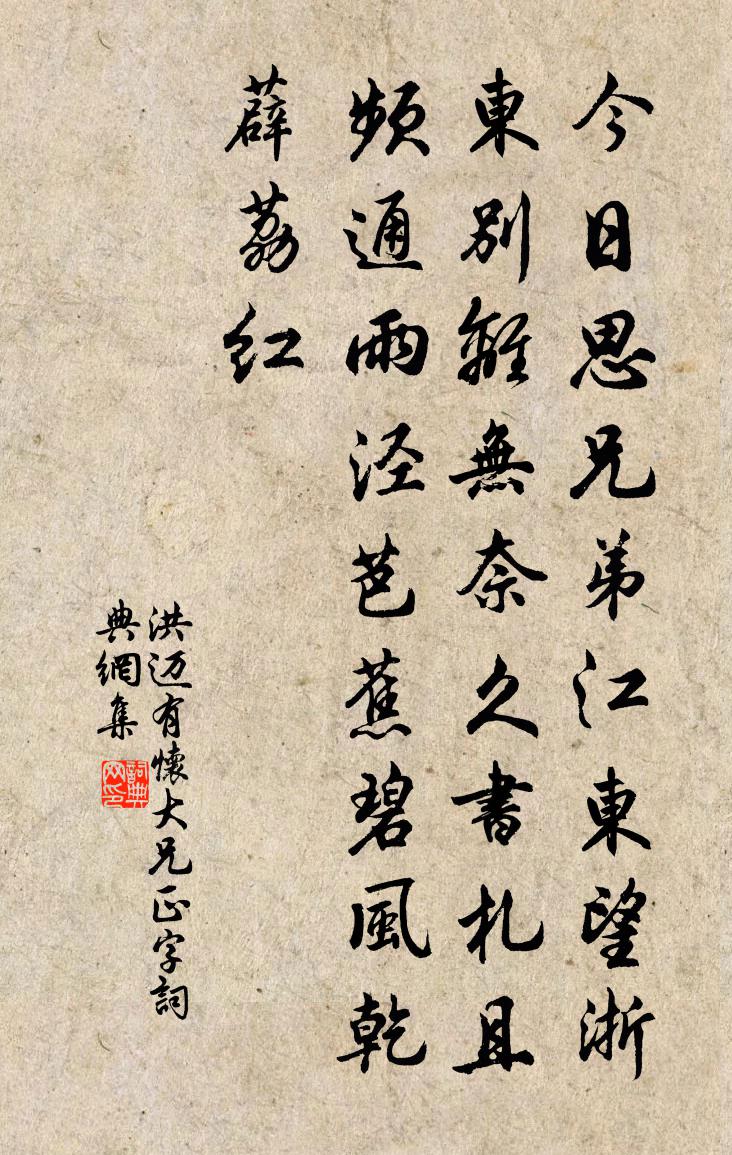 今日思兄弟江東望淅
東別離無奈久書札且
頻通雨泾芭蕉碧風乾
薜荔红
洪迈有懷大兄正字詞
典網集
詞典
网印